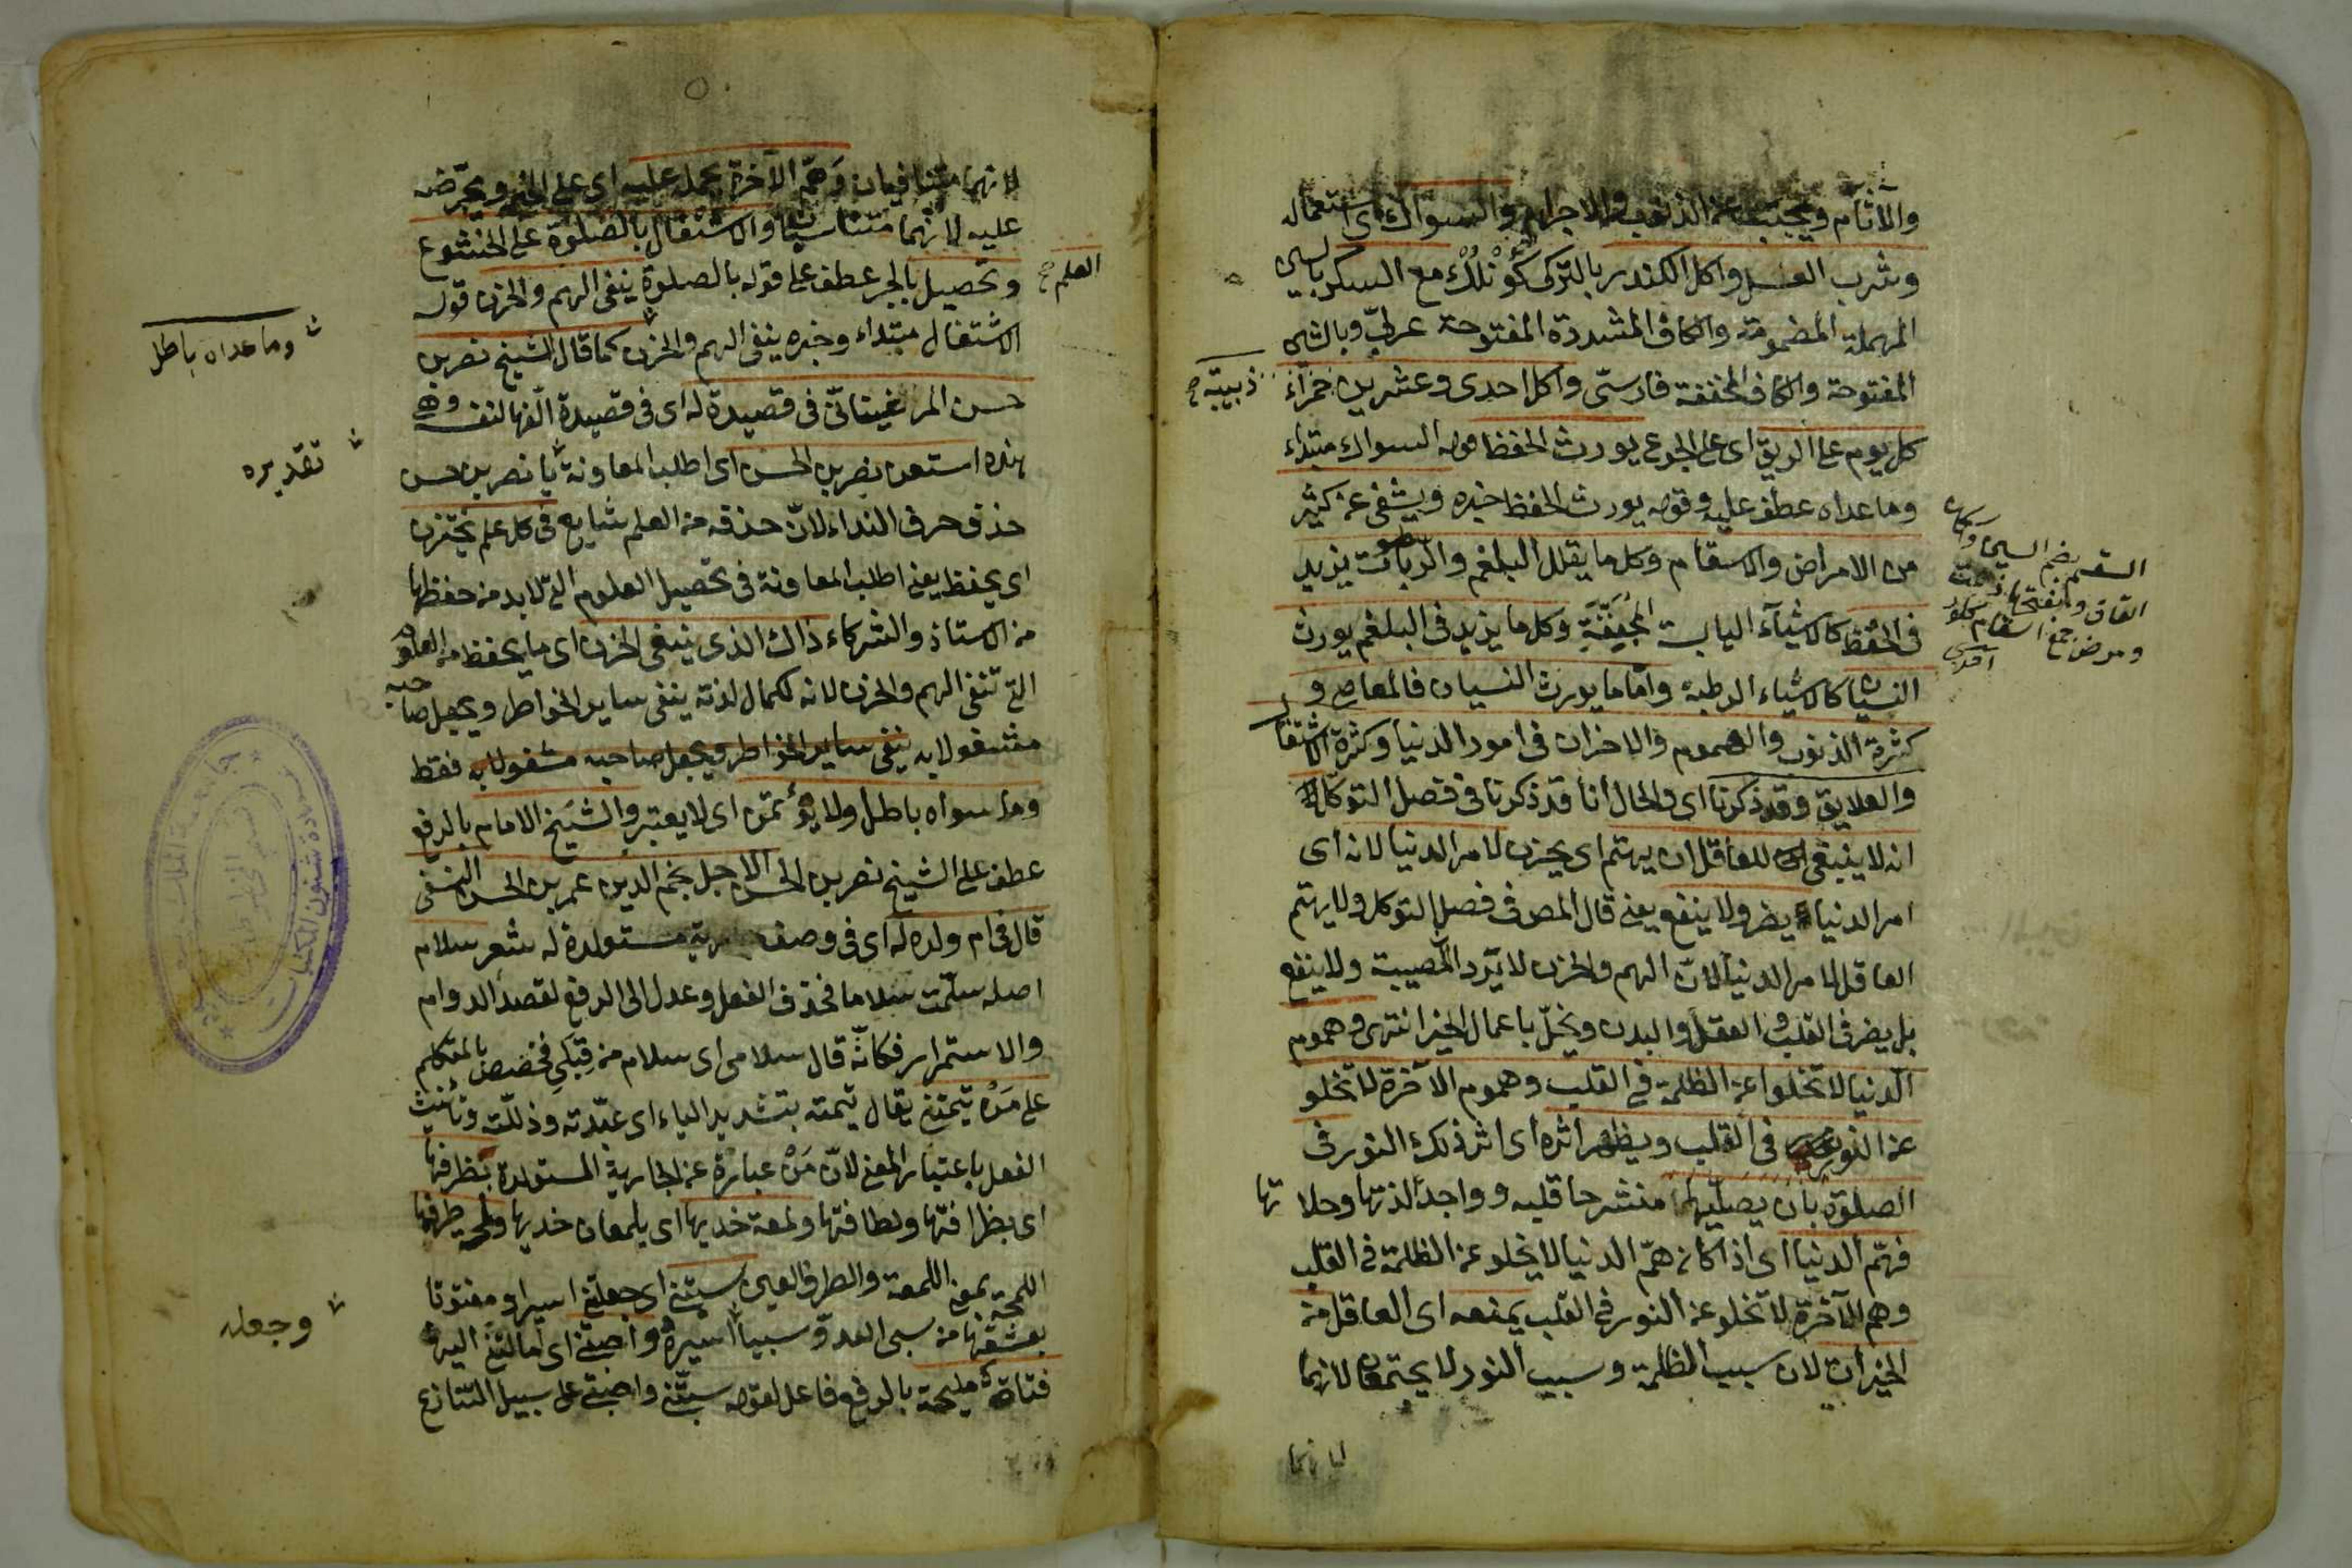 والآثام ويجتنب عن الذنوب والاجرام والسواك اى استعماله
وشرب العسل واكل الكندر بالتركى كُونْلُكْ مع السكر بالسين
المهملة المضمومة والكاف المشددة المفتوحة عربىّ وبالشين
المفتوحة والكاف المخففة فارسىّ واكل احدى وعشرين حمراء
زبيبة صح
كل يوم على الريق اى على الجوع يورث الحفظ قوله السواك مبتداء
وما عداه عطف عليه وقوله يورث الحفظ خبره ويشفى عن كثير
من الامراض والاسقام وكل ما يقلل البلغم والرطوبات يزيد
السقم بضم السين وسكون
القاف وبفتحها
ومرض جمع اسقام
فى الحفظ كالاشيآء اليابسة المجففة وكل ما يزيد فى البلغم يورث
النسيان كالاشياء الرطبة وامّا ما يورث النسيان فالمعاصى و
كثرة الذنوب والهموم والاحزان فى امور الدنيا وكثرة الاشتغال
والعلايق وقد ذكرنا اى والحال انا قد ذكرنا فى فصل التوكل
انه لا ينبغى للعاقل ان يهتم اى يحزن لامر الدنيا لانه اى
امر الدنيا يضر ولا ينفع يعنى قال المص فى فصل التوكل ولا يهتم
العاقل لامر الدنيا لانّ الهم والحزن لا يردّ المصيبة ولا ينفع
بل يضر فى القلب والعقل والبدن ويخلّ باعمال الخير انتهى وهموم
الدنيا لا تخلوا عن الظلمة فى القلب وهموم الآخرة لا تخلو
عن النور فى القلب ويظهر اثره اى اثر ذلك النور فى
الصلوة بان يصلّيها منشرحا قلبه وواجدا لذتها وحلاوتها
فهمّ الدنيا اى اذا كان همّ الدنيا لا يخلو عن الظلمة فى القلب
وهم الآخرة لا تخلو عن النور فى القلب يمنعه اى العاقل من
الخيرات لان سبب الظلمة وسبب النور لا يجتمعان لانهما
لانهما
لانهما متنافيان وَهمّ الآخرة يحمله عليه اى على الخير ويحرّضه
عليه لانهما متناسبان والاشتغال بالصلوة على الخشوع
وتحصيل بالجر عطف على قوله بالصلوة ينفى الهم والحزن قوله
العلم صح
الاشتغال مبتداء وخبره ينفى الهم والحزن كما قال الشيخ نصر بن
وما عداه باطل
حسن المرغينانىّ فى قصيدة له اى فى قصيدة الّفها لنفسه وهى
هذه استعن نصر بن الحسن اى اطلب المعاونة يا نصر بن حسن
تقديره
حذف حرف النداء لانّ حذفه من العلم شايع فى كل علم يختزن
اى يحفظ يعنى اطلب المعاونة فى تحصيل العلوم التى لابد من حفظها
من الاستاذ والشركاء ذاك الذى ينفى الحزن اى ما يحفظ من العلوم
التى تنفى الهم والحزن لانه لكمال لذته ينفى ساير الخواطر ويجعل صاحبه
مشغولا به ينفى ساير الخواطر ويجعل صاحبه مشغولا به فقط
وما سواه باطل ولا يؤتمن اى لا يعتبر والشيخ الامام بالرفع
عطف على الشيخ نصر بن الحسن الاجل نجم الدين عمر بن الحسن النسفى
قال فى ام ولده له اى فى وصف مستولدة له شعر سلام
اصله سلّمت سلاما فحذف الفعل وعدل الى الرفع لقصد الدوام
والاستمرار فكانّه قال سلامى اى سلام من قِبَلى فخصص بالمتكلم
على مَنْ تيّمتنى يقال تيمته بتشديد الياء اى عبّدته وذللته وتأنيث
الفعل باعتبار المعنى لانّ مَنْ عبارة عن الجارية المستولدة بظرفها
اى بظرافتها ولطافتها ولمعة خديها اى يلمعان خديها ولمحة طرفها
اللمحة بمعنى اللمعة والطرف العين سبتنى اى جعلتنى اسيرا ومفتونا
وجعله
بعشقها من سبى العدوّ سبيا اسيره واصبتنى اى امالتنى اليها
فتاة مليحة بالرفع فاعل لقوله سبتنى واصبتنى على سبيل التنازع